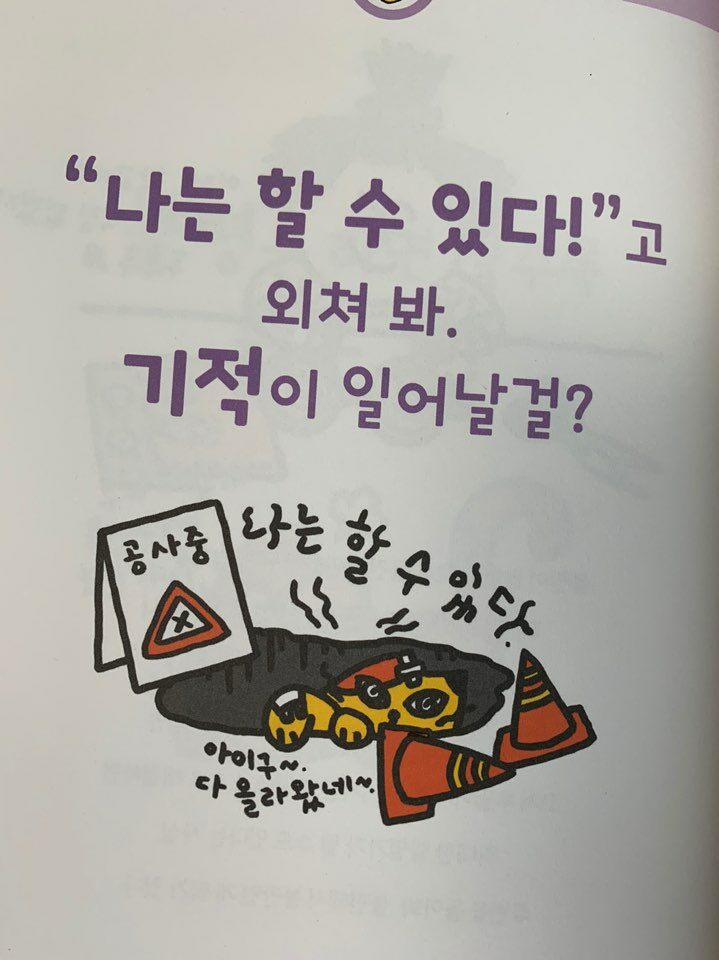 “나는 할 수 있다!”고
외쳐 봐.
기적이 일어날걸?
공사중
나는 할 수 있다.
X
아이구~.
다 올라왔네~.